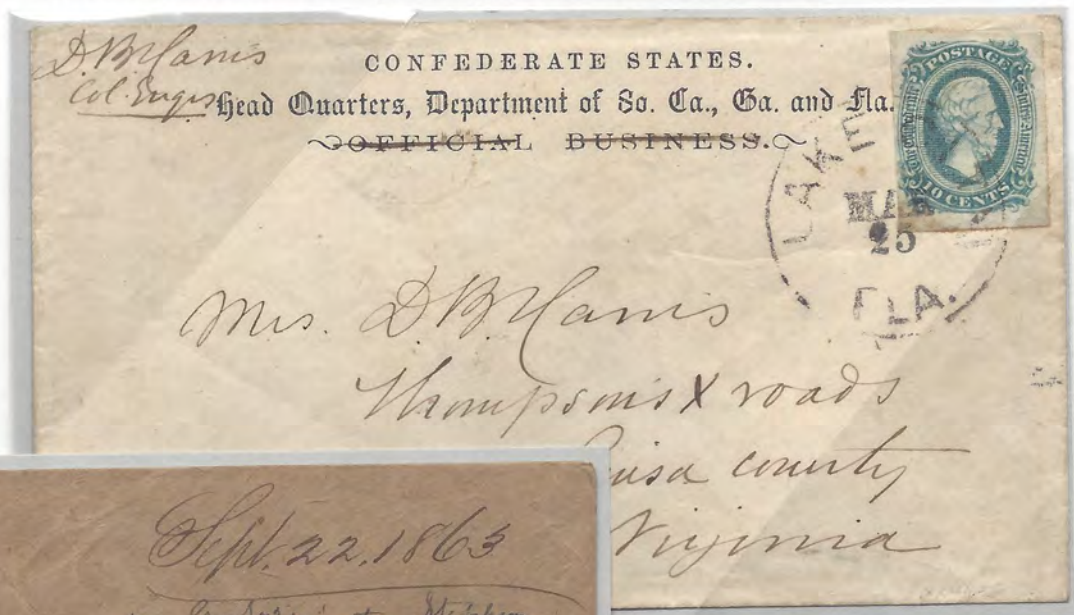 D. B. Harris
Col. Engrs
CONFEDERATE STATES.
Head Quarters, Department of So. Ca., Ga. and Fla.
OFFICIAL BUSINESS.
POSTAGE
The Confederate States of America
10 CENTS
LAKE
MAR
25
FLA.
Mrs. D. B. Harris
Thompson's X roads
uisa county
Virginia
Sept. 22, 1863